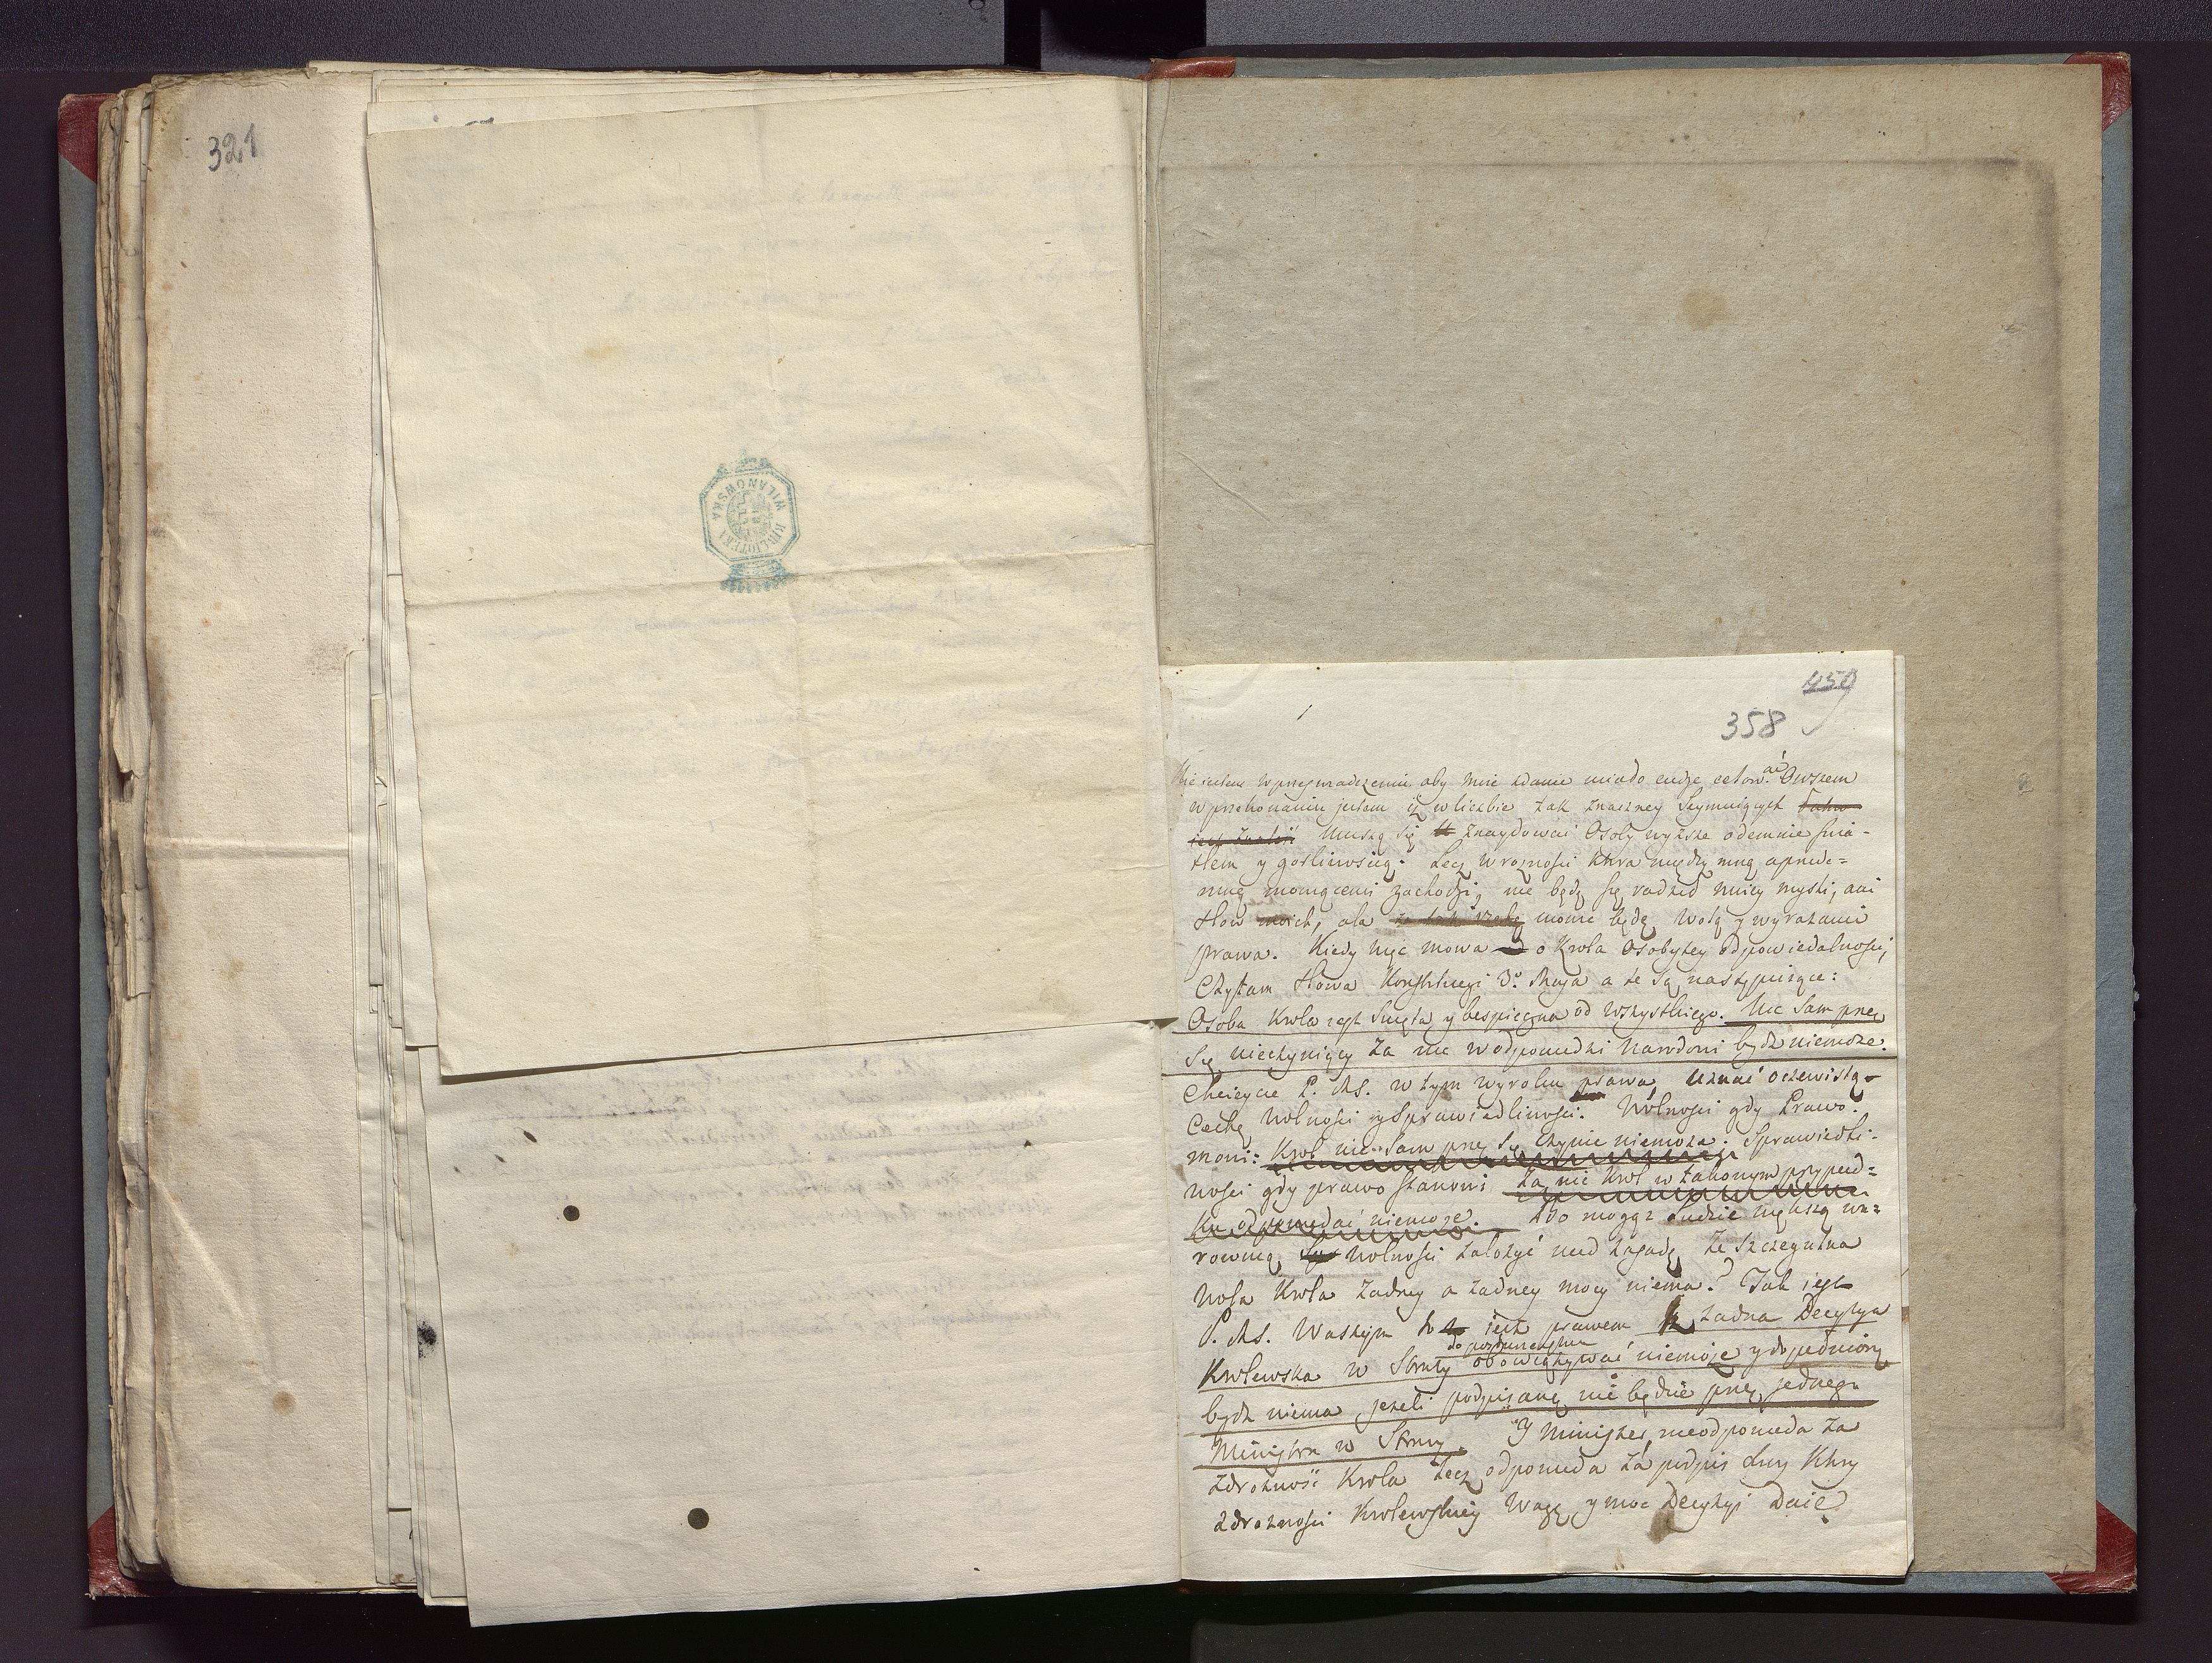 321
BIBLIOTEKI WILANOWSKA
450
358
Nie jestem w przeświadczeniu aby moie zdanie miało cudze celować Owszem
w przekonaniu jestem iż w liczbie tak znaczney Seymuiących
Muszą się znaydować Osoby wyższe odemnie świa-
tłem y gorliwością. Lecz w rożności ktora między mną a prze-
mną mowiącemi zachodzi, nie będę się radził moiey myśli, ani
słow moich, ale mowić będę wolą y wyrazami
prawa. Kiedy więc mowa o Krola Osobistey odpowiedalności,
Czytam słowa Konstytucyi 3º Maja a te są następuiące:
Osoba Krola jest Swięta y bespieczna od wszystkiego. Nic Sam przez
Się nieczyniący za nic w odpowiedzi Narodowi bydz niemoże.
Chcieycie P. M S. w tym wyroku prawa uznać oczewistą
Cechę wolności y Sprawiedliwości. Wolności gdy Prawo
mowi: Krol nic Sam przez Się czynić niemoże. Sprawiedli-
wości gdy prawo stanowi za nic Krol w takowym przypad=
ku odpowiedać niemoże. Abo mogąz Ludzie większą wa=
rownią wolności założyć nad zasadę, że szczegulna
wola Krola żadney a żadney mocy niema? Tak jest
P. M S. Waszym to jest prawem że żadna Decyzya
do posłuszeństwa
Krolewska w Straży obowiązywać niemoże y dopełnioną
bydz niema jeżeli podpisaną nie będzie przez jednego
Ministra w Straży. Y Minister nieodpowieda za
zdrożność Krola Lecz odpowieda za podpis swoy ktory
zdrożności Krolewskiey Wagę y moc Decyzyi Daie.